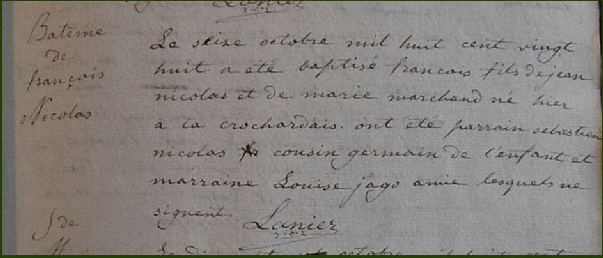 Lanier
Bateme
de
françois
Nicolas
Le seize octobre mil huit cent vingt
huit a eté baptisé francois fils de jean
nicolas et de marie marchand né hier
a la crochardais. ont eté parrain sebastien
nicolas cousin germain de l'enfant et
marraine Louise jago amie lesquels ne
signent
Lanier
S de
octobre